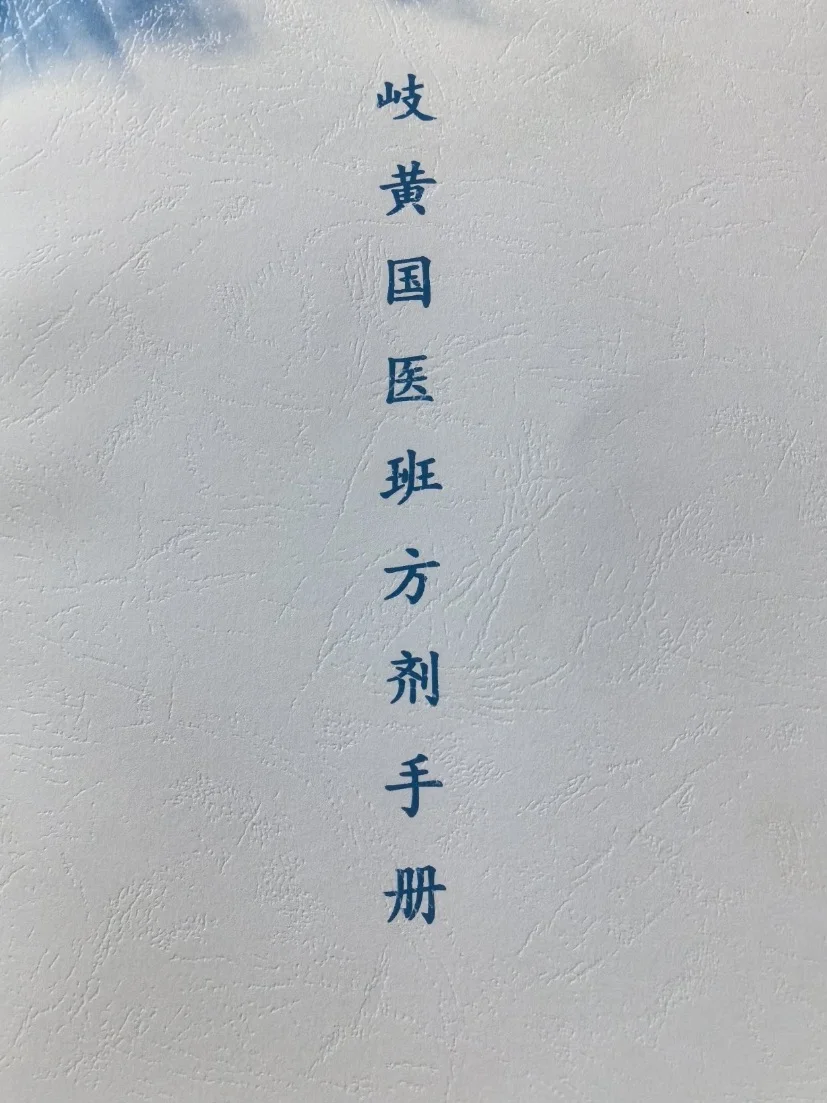 岐黄国医班方剂手册